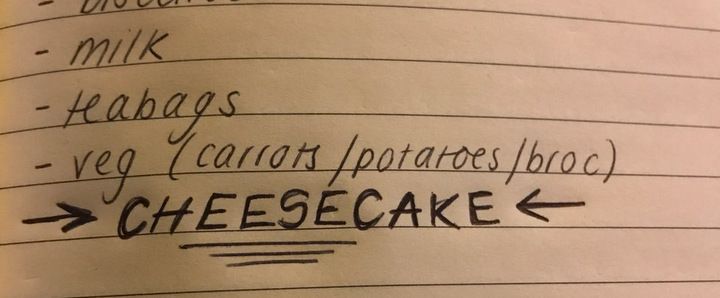 - milk
- teabags
- veg (carrots/potatoes/broc)
→ CHEESECAKE ←